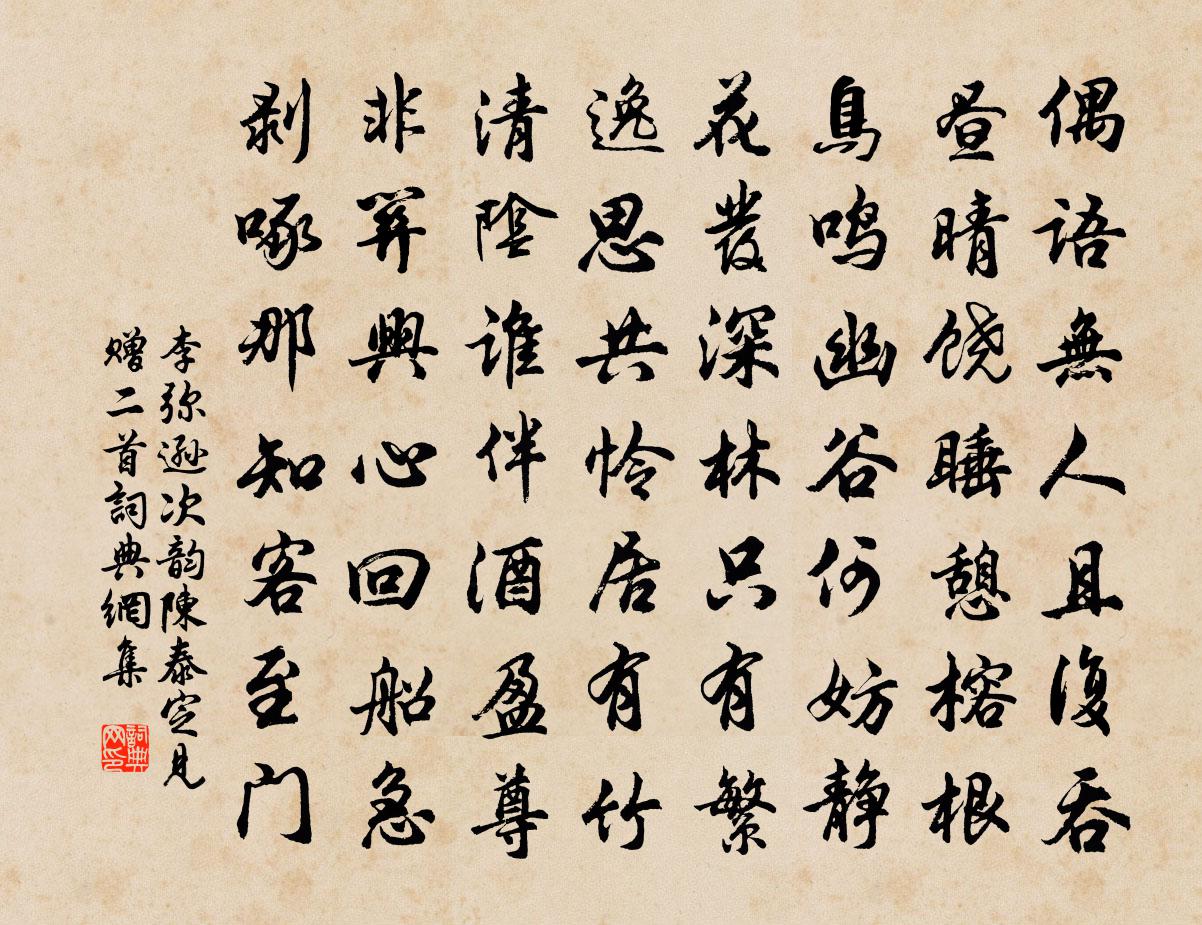 偶語無人且復吞
昼晴饶睡憩榕根
鳥鸣幽谷何妨静
花發深林只有繁
逸思共怜居有竹
清陰谁伴酒盈尊
非關興心回船急
剥啄那知客至门
李弥遜次韵陳泰定見
赠二首詞典網集
詞典网印